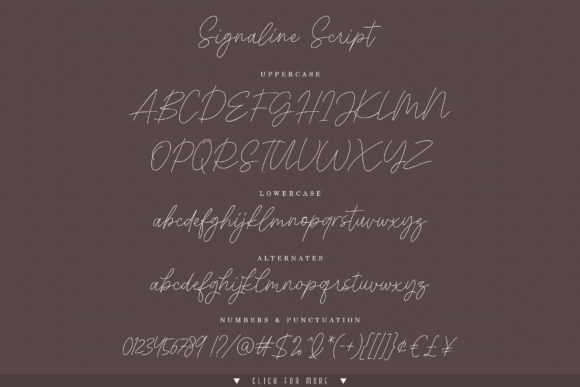 Signaline Script
UPPERCASE
ABCDEFGHIJKLMN
OPQRSTUVWXYZ
LOWERCASE
abcdefghijklmnopqrstuvwxyz
ALTERNATES
abcdefghijklmnopqrstuvwxyz
NUMBERS & PUNCTUATION
0123456789 !?/@#$%&*(-+){[|]}¢€£¥
▼ CLICK FOR MORE ▼